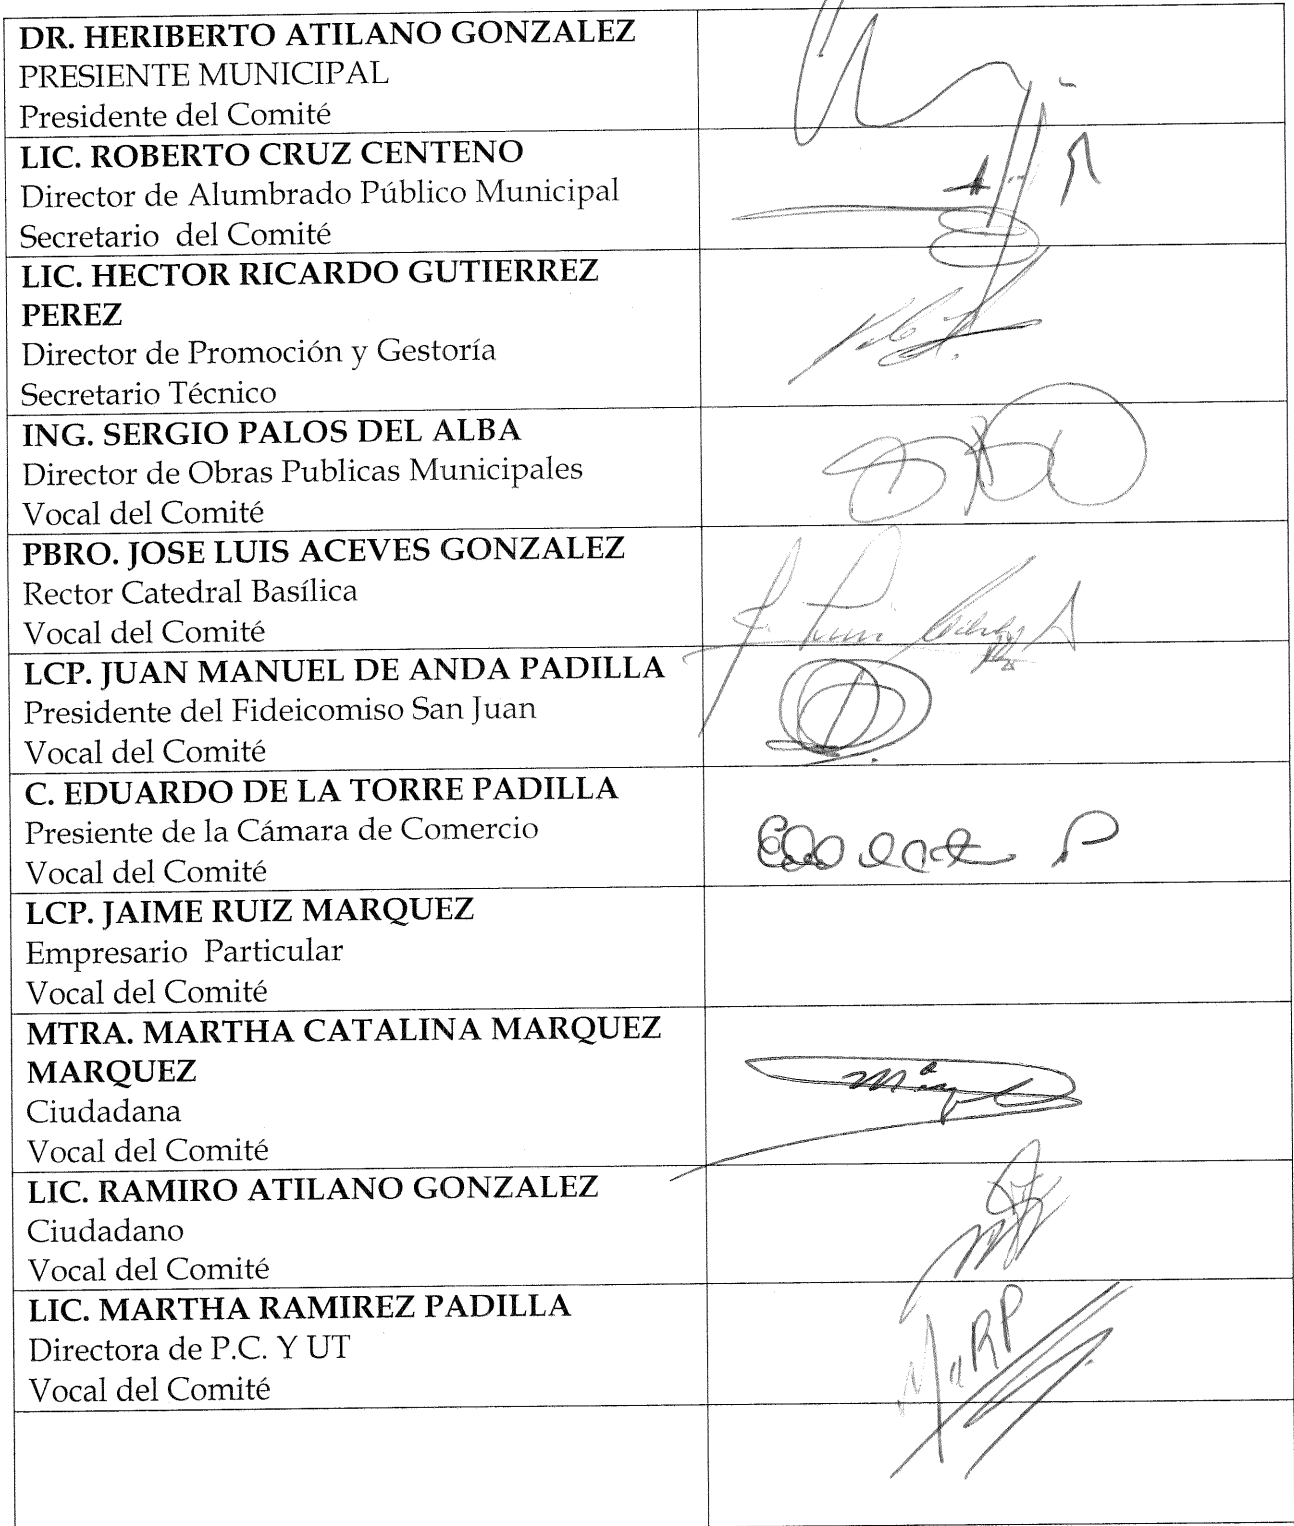 DR. HERIBERTO ATILANO GONZALEZ
PRESIENTE MUNICIPAL
Presidente del Comité
LIC. ROBERTO CRUZ CENTENO
Director de Alumbrado Público Municipal
Secretario del Comité
LIC. HECTOR RICARDO GUTIERREZ
PEREZ
Director de Promoción y Gestoría
Secretario Técnico
ING. SERGIO PALOS DEL ALBA
Director de Obras Publicas Municipales
Vocal del Comité
PBRO. JOSE LUIS ACEVES GONZALEZ
Rector Catedral Basílica
Vocal del Comité
LCP. JUAN MANUEL DE ANDA PADILLA
Presidente del Fideicomiso San Juan
Vocal del Comité
C. EDUARDO DE LA TORRE PADILLA
Presiente de la Cámara de Comercio
Vocal del Comité
LCP. JAIME RUIZ MARQUEZ
Empresario Particular
Vocal del Comité
MTRA. MARTHA CATALINA MARQUEZ
MARQUEZ
Ciudadana
Vocal del Comité
LIC. RAMIRO ATILANO GONZALEZ
Ciudadano
Vocal del Comité
LIC. MARTHA RAMIREZ PADILLA
Directora de P.C. Y UT
Vocal del Comité
MaRP